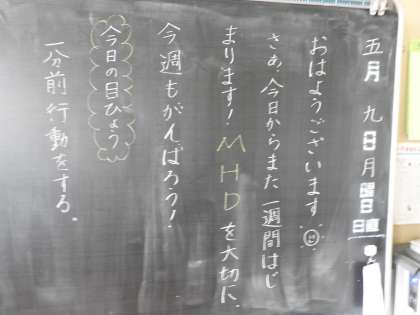 五月九日月曜日
日直
おはようございます
さあ、今日からまた一週間はじ
まります！MHDを大切に、
今週もがんばろう！
今日の目ひょう
一分前行動をする。